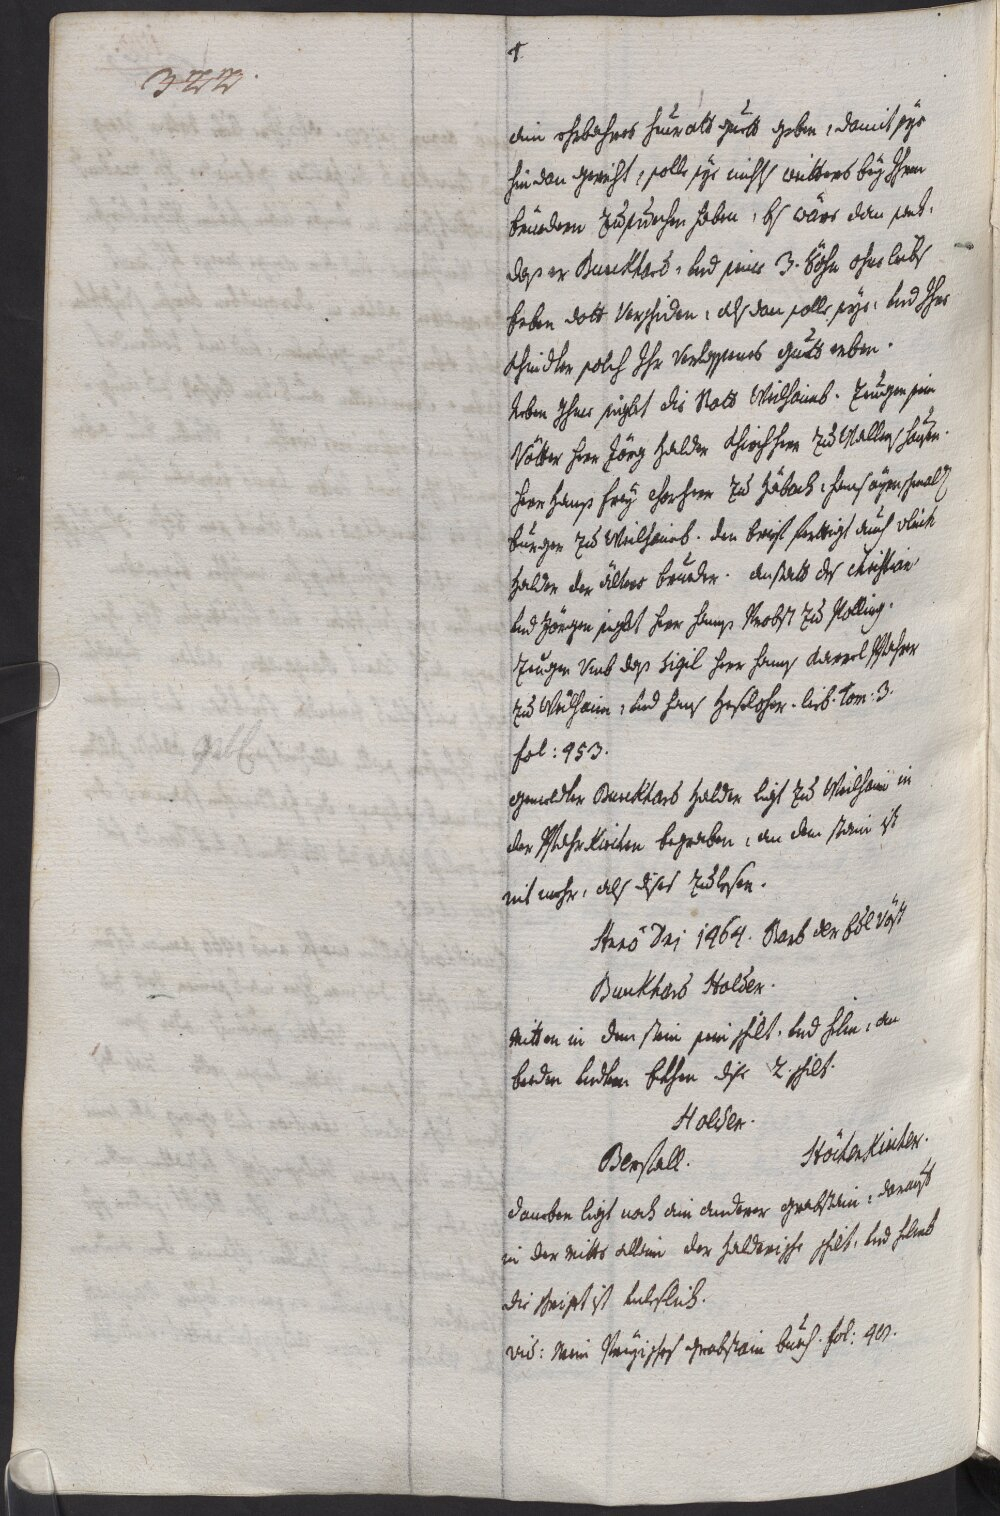 322.
ain ehrbahres heürath guett geben, damit sye
hindan gericht, solle sye nichts weitters bey Ihren
brüedern zu suechen haben, es wäre dan sach,
daß er Burckhard, und seine 3. Söhn ohne leibs
Erben dott verschiden, alsdan solle sye, und Ihre
Khinder solch Ihr verlassnes guett erben.
neben Ihme siglet die Statt Weilhaimb. Zeugen sein
Vötter herr Jörg Halder Khirchherr zu
herr Hanß Frey Chorherr zu Häbach, Hanß
burger zu Weilhaimb. den brief ferttigt auch Ulrich
Halder der ältere brueder. anstatt des Christian
und Jörgen siglet herr Hanß Probst zu Polling.
Zeugen umb daß Sigil herr Hanß Pfahrer
zu Weilhaim, und Hanß Hesloher. lib. Tom: 3.
fol: 453.
gemeldter Burckhard Halder ligt zu Weilhaim in
der Pfahrkirchen begraben, an dem stain ist
nit mehr, als dises zulesen.
Anno Dni 1464. Starb der Edl vösst
Burckhard Halder.
mitten in dem stein sein schilt, und helm, an
beeden undern Ekhen dise 2. schilt.
Halder.
Berstall. Höchenkircher.
daneben ligt noch ein anderer grabstain, darauf
in der mitte allein der Halderische schilt, und helmb
die schrifft ist unleslich.
vid: mein Preysisches grabstain buech. fol: 40.